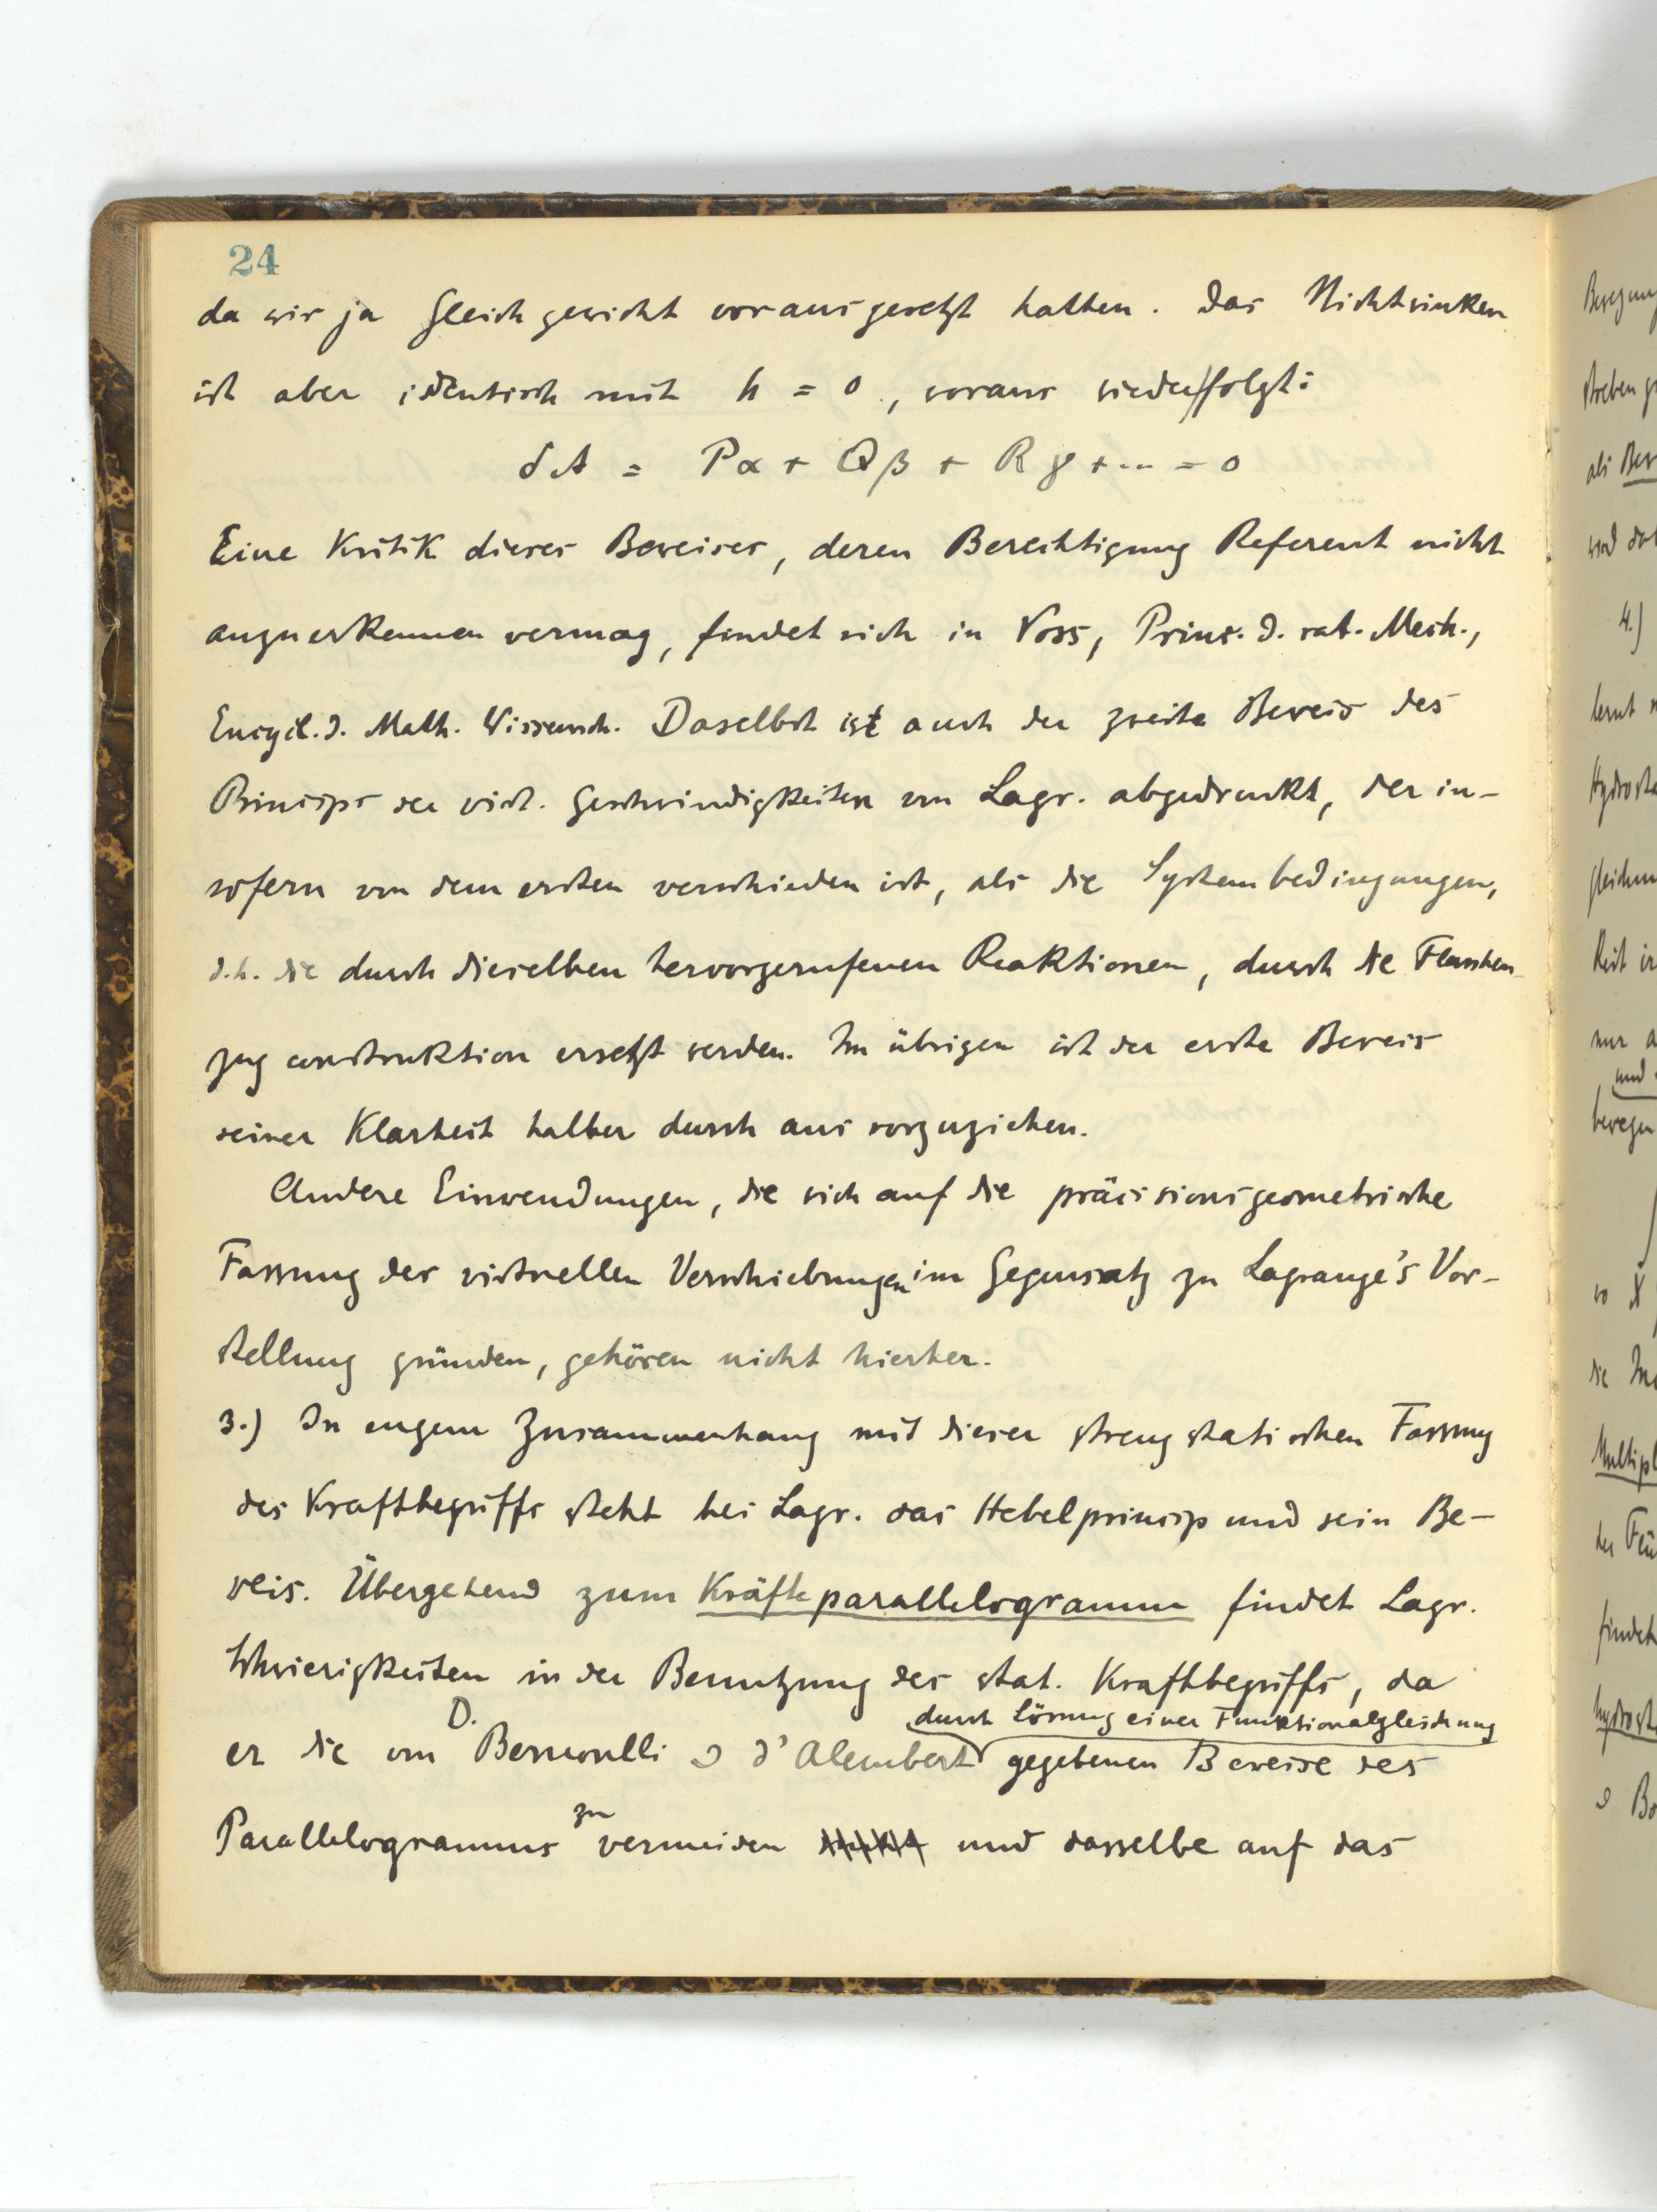 24
da wir ja Gleichgewicht vorausgesetzt hatten. Das Nichtsinken
ist aber identisch mit h = 0, woraus wieder folgt:
δA = Pα + Qβ + Rγ + ... = 0
Eine Kritik dieses Beweises, deren Berechtigung Referent nicht
anzuerkennen vermag, findet sich in Voss, Princ. d. rat. Mech.,
Encycl. d. Math. Wissensch. Daselbst ist auch der zweite Beweis des
Princips der virt. Geschwindigkeiten von Lagr. abgedruckt, der in-
sofern von dem ersten verschieden ist, als die Systembedingungen,
d.h. die durch dieselben hervorgerufenen Reaktionen, durch die Flaschen-
zugconstruktion ersetzt werden. Im übrigen ist der erste Beweis
seiner Klarheit halber durchaus vorzuziehen.
Andere Einwendungen, die sich auf die präcisionsgeometrische
Fassung der virtuellen Verschiebungen im Gegensatz zu Lagrange's Vor-
stellung gründen, gehören nicht hierher.
3.) In engem Zusammenhang mit dieser streng statischen Fassung
des Kraftbegriffs steht bei Lagr. das Hebelprincip und sein Be-
weis. Übergehend zum Kräfteparallelogramm findet Lagr.
Schwierigkeiten in der Benutzung des stat. Kraftbegriffs, da
durch Lösung einer Funktionalgleichung
er die von D. Bernoulli & d'Alembert gegebenen Beweise des
Parallelogramms zu vermeiden und dasselbe auf das